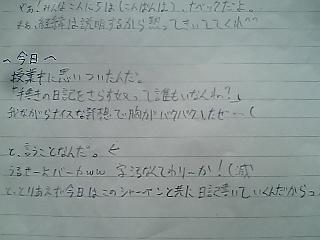 やぁ！みんなこんにちは(こんばんは)、ナベックだよ。
まぁ、経緯は説明するから黙ってきいててくれ^^
〜今日〜
授業中に思いついたんだ。
「手書きの日記をさらす奴って誰もいなくね？」
我ながらナイスな発想で胸がバクバクしたぜ…(
と、言うことなんだ。
うるせーよバーカww 字汚なくてわりーか！(滅
と、とりあえず今日はこのシャーペンと共に日記書いていくんだからっ